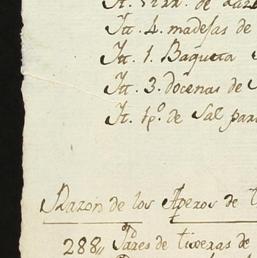 It. 4. madejas de
It. 1. Baqueta
It. 3. docenas de
It. tpº. de Sal para
Razon de los Aperos de
288,, Pares de tixeras de